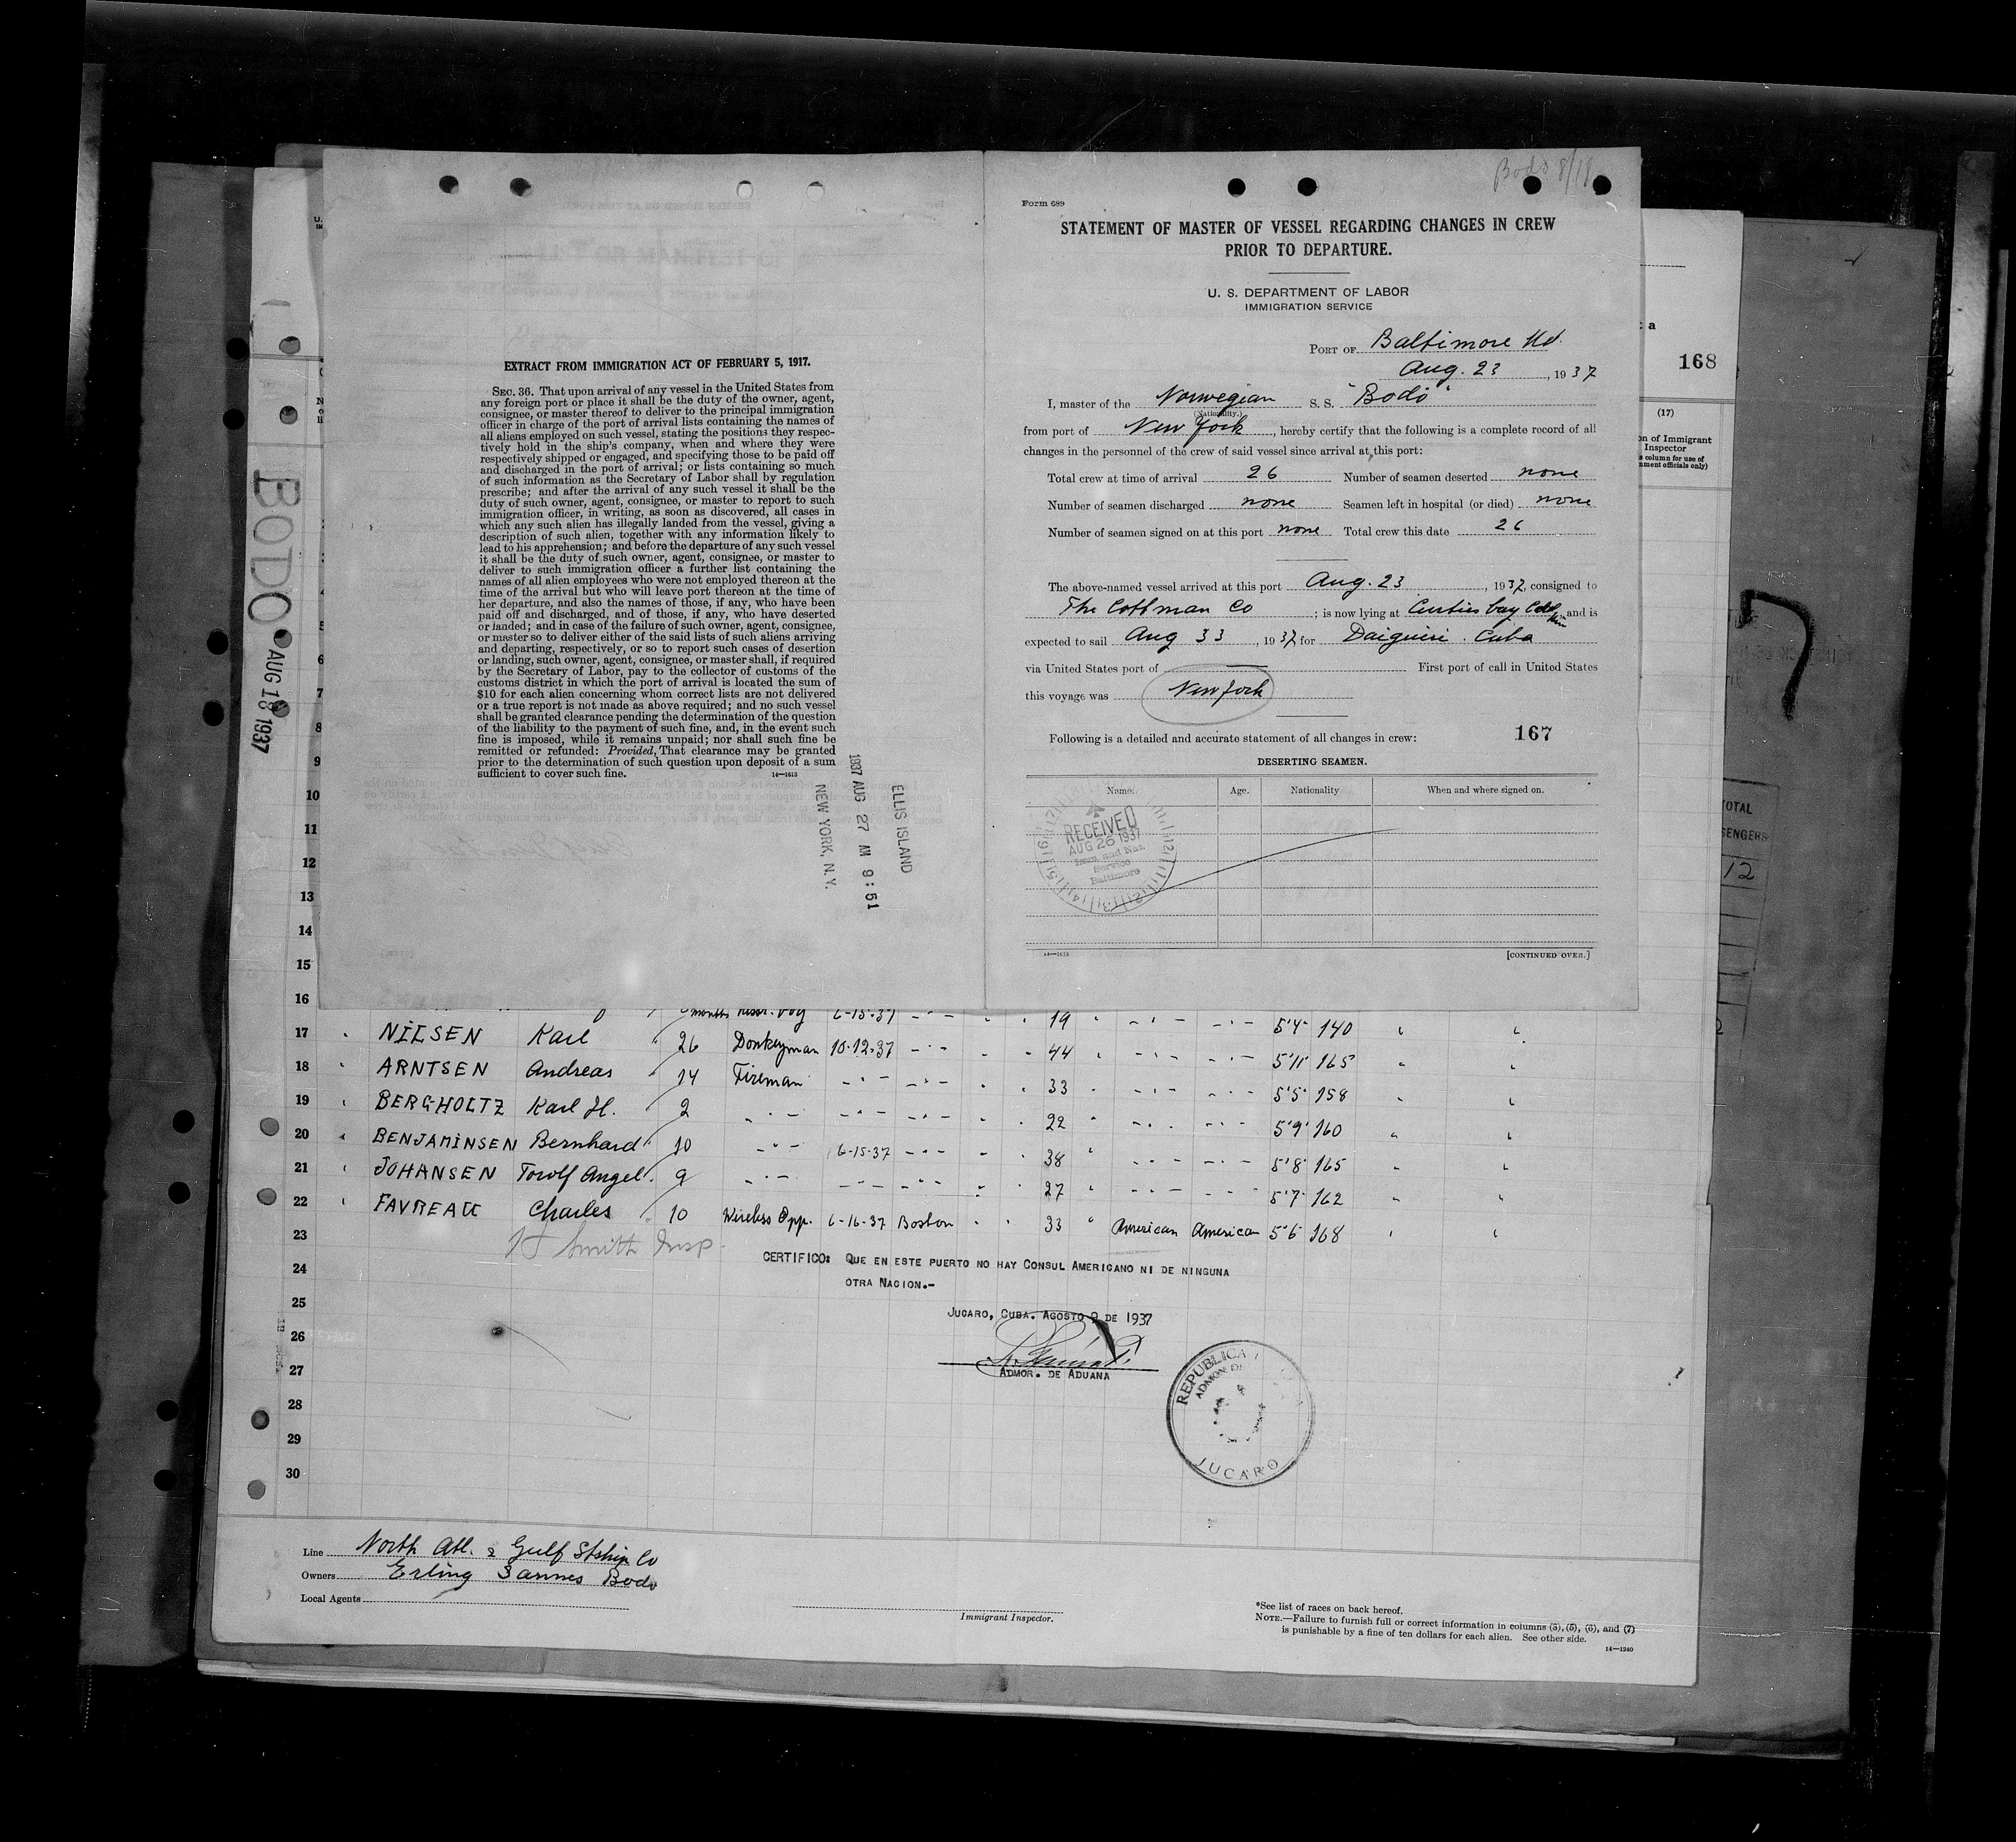 EXTRACT FROM IMMIGRATION ACT OF FEBRUARY 5, 1917.
SEC. 36. That upon arrival of any vessel in the United States from
any foreign port or place it shall be the duty of the owner, agent,
consignee, or master thereof to deliver to the principal immigration
officer in charge of the port of arrival lists containing the names of
all aliens employed on such vessel, stating the positions they respec-
tively hold in the ship's company, when and where they were
respectively shipped or engaged, and specifying those to be paid off
and discharged in the port of arrival; or lists containing so much
of such information as the Secretary of Labor shall by regulation
prescribe; and after the arrival of any such vessel it shall be the
duty of such owner, agent, consignee, or master to report to such
immigration officer, in writing, as soon as discovered, all cases in
which any such alien has illegally landed from the vessel, giving a
description of such alien, together with any information likely to
lead to his apprehension; and before the departure of any such vessel
it shall be the duty of such owner, agent, consignee, or master to
deliver to such immigration officer a further list containing the
names of all alien employees who were not employed thereon at the
time of the arrival but who will leave port thereon at the time of
her departure, and also the names of those, if any, who have been
paid off and discharged, and of those, if any, who have deserted
or landed; and in case of the failure of such owner, agent, consignee,
or master so to deliver either of the said lists of such aliens arriving
and departing, respectively, or so to report such cases of desertion
or landing, such owner, agent, consignee, or master shall, if required
by the Secretary of Labor, pay to the collector of customs of the
customs district in which the port of arrival is located the sum of
$10 for each alien concerning whom correct lists are not delivered
or a true report is not made as above required; and no such vessel
shall be granted clearance pending the determination of the question
of the liability to the payment of such fine, and, in the event such
fine is imposed, while it remains unpaid; nor shall such fine be
remitted or refunded: Provided, That clearance may be granted
prior to the determination of such question upon deposit of a sum
sufficient to cover such fine.
14—1613
ELLIS ISLAND
1937 AUG 27 AM 9:51
NEW YORK, N.Y.
BODO
AUG 18 1937
Bodo 8/18
Form 689
STATEMENT OF MASTER OF VESSEL REGARDING CHANGES IN CREW
PRIOR TO DEPARTURE.
U. S. DEPARTMENT OF LABOR
IMMIGRATION SERVICE
PORT OF Baltimore Md.
Aug. 23, 1937
I, master of the Norwegian S. S. "Bodö"
(Nationality.)
from port of New York, hereby certify that the following is a complete record of all
changes in the personnel of the crew of said vessel since arrival at this port:
Total crew at time of arrival 26 Number of seamen deserted none
Number of seamen discharged none Seamen left in hospital (or died) none
Number of seamen signed on at this port none Total crew this date 26
The above-named vessel arrived at this port Aug. 23, 1937, consigned to
The Cottman Co; is now lying at Curties bay and is
expected to sail Aug 33, 1937 for Daiquiri. Cuba
via United States port of — First port of call in United States
this voyage was New York
167
Following is a detailed and accurate statement of all changes in crew:
DESERTING SEAMEN.
Name. Age. Nationality When and where signed on.
RECEIVED
AUG 26 1937
Imm. and Nat.
Service
Baltimore
14—1613 [CONTINUED OVER.]
168
(17)
on of Immigrant
Inspector
s column for use of
nment officials only)
TOTAL
SENGERS
12
6
7
8
9
10
11
12
13
14
15
16 months Messr. boy 6-15-37 19 5'4" 140
17 NILSEN Karl 26 Donkeyman 10-12-37 44 5'11" 165
18 ARNTSEN Andreas 14 Fireman 33 5'5" 158
19 BERGHOLTZ Karl H. 2 22 5'9" 160
20 BENJAMINSEN Bernhard 10 6-15-37 38 5'8" 165
21 JOHANSEN Torolf Angel 9 27 5'7" 162
22 FAVREAU Charles 10 Wireless Opp. 6-16-37 Boston 33 " American American 5'6" 168
23 Smith Insp.
CERTIFICO: QUE EN ESTE PUERTO NO HAY CONSUL AMERICANO NI DE NINGUNA
24
OTRA NACION.-
25
JUCARO, CUBA. AGOSTO 9 DE 1937
26
27
ADMOR. DE ADUANA
REPUBLICA
ADMON. DE
JUCARO
28
29
30
Line North Atl. & Gulf Stship Co
Owners Erling Sannes Bodo
Local Agents
Immigrant Inspector.
*See list of races on back hereof.
NOTE.—Failure to furnish full or correct information in columns (3), (5), (6), and (7)
is punishable by a fine of ten dollars for each alien. See other side.
14—1240